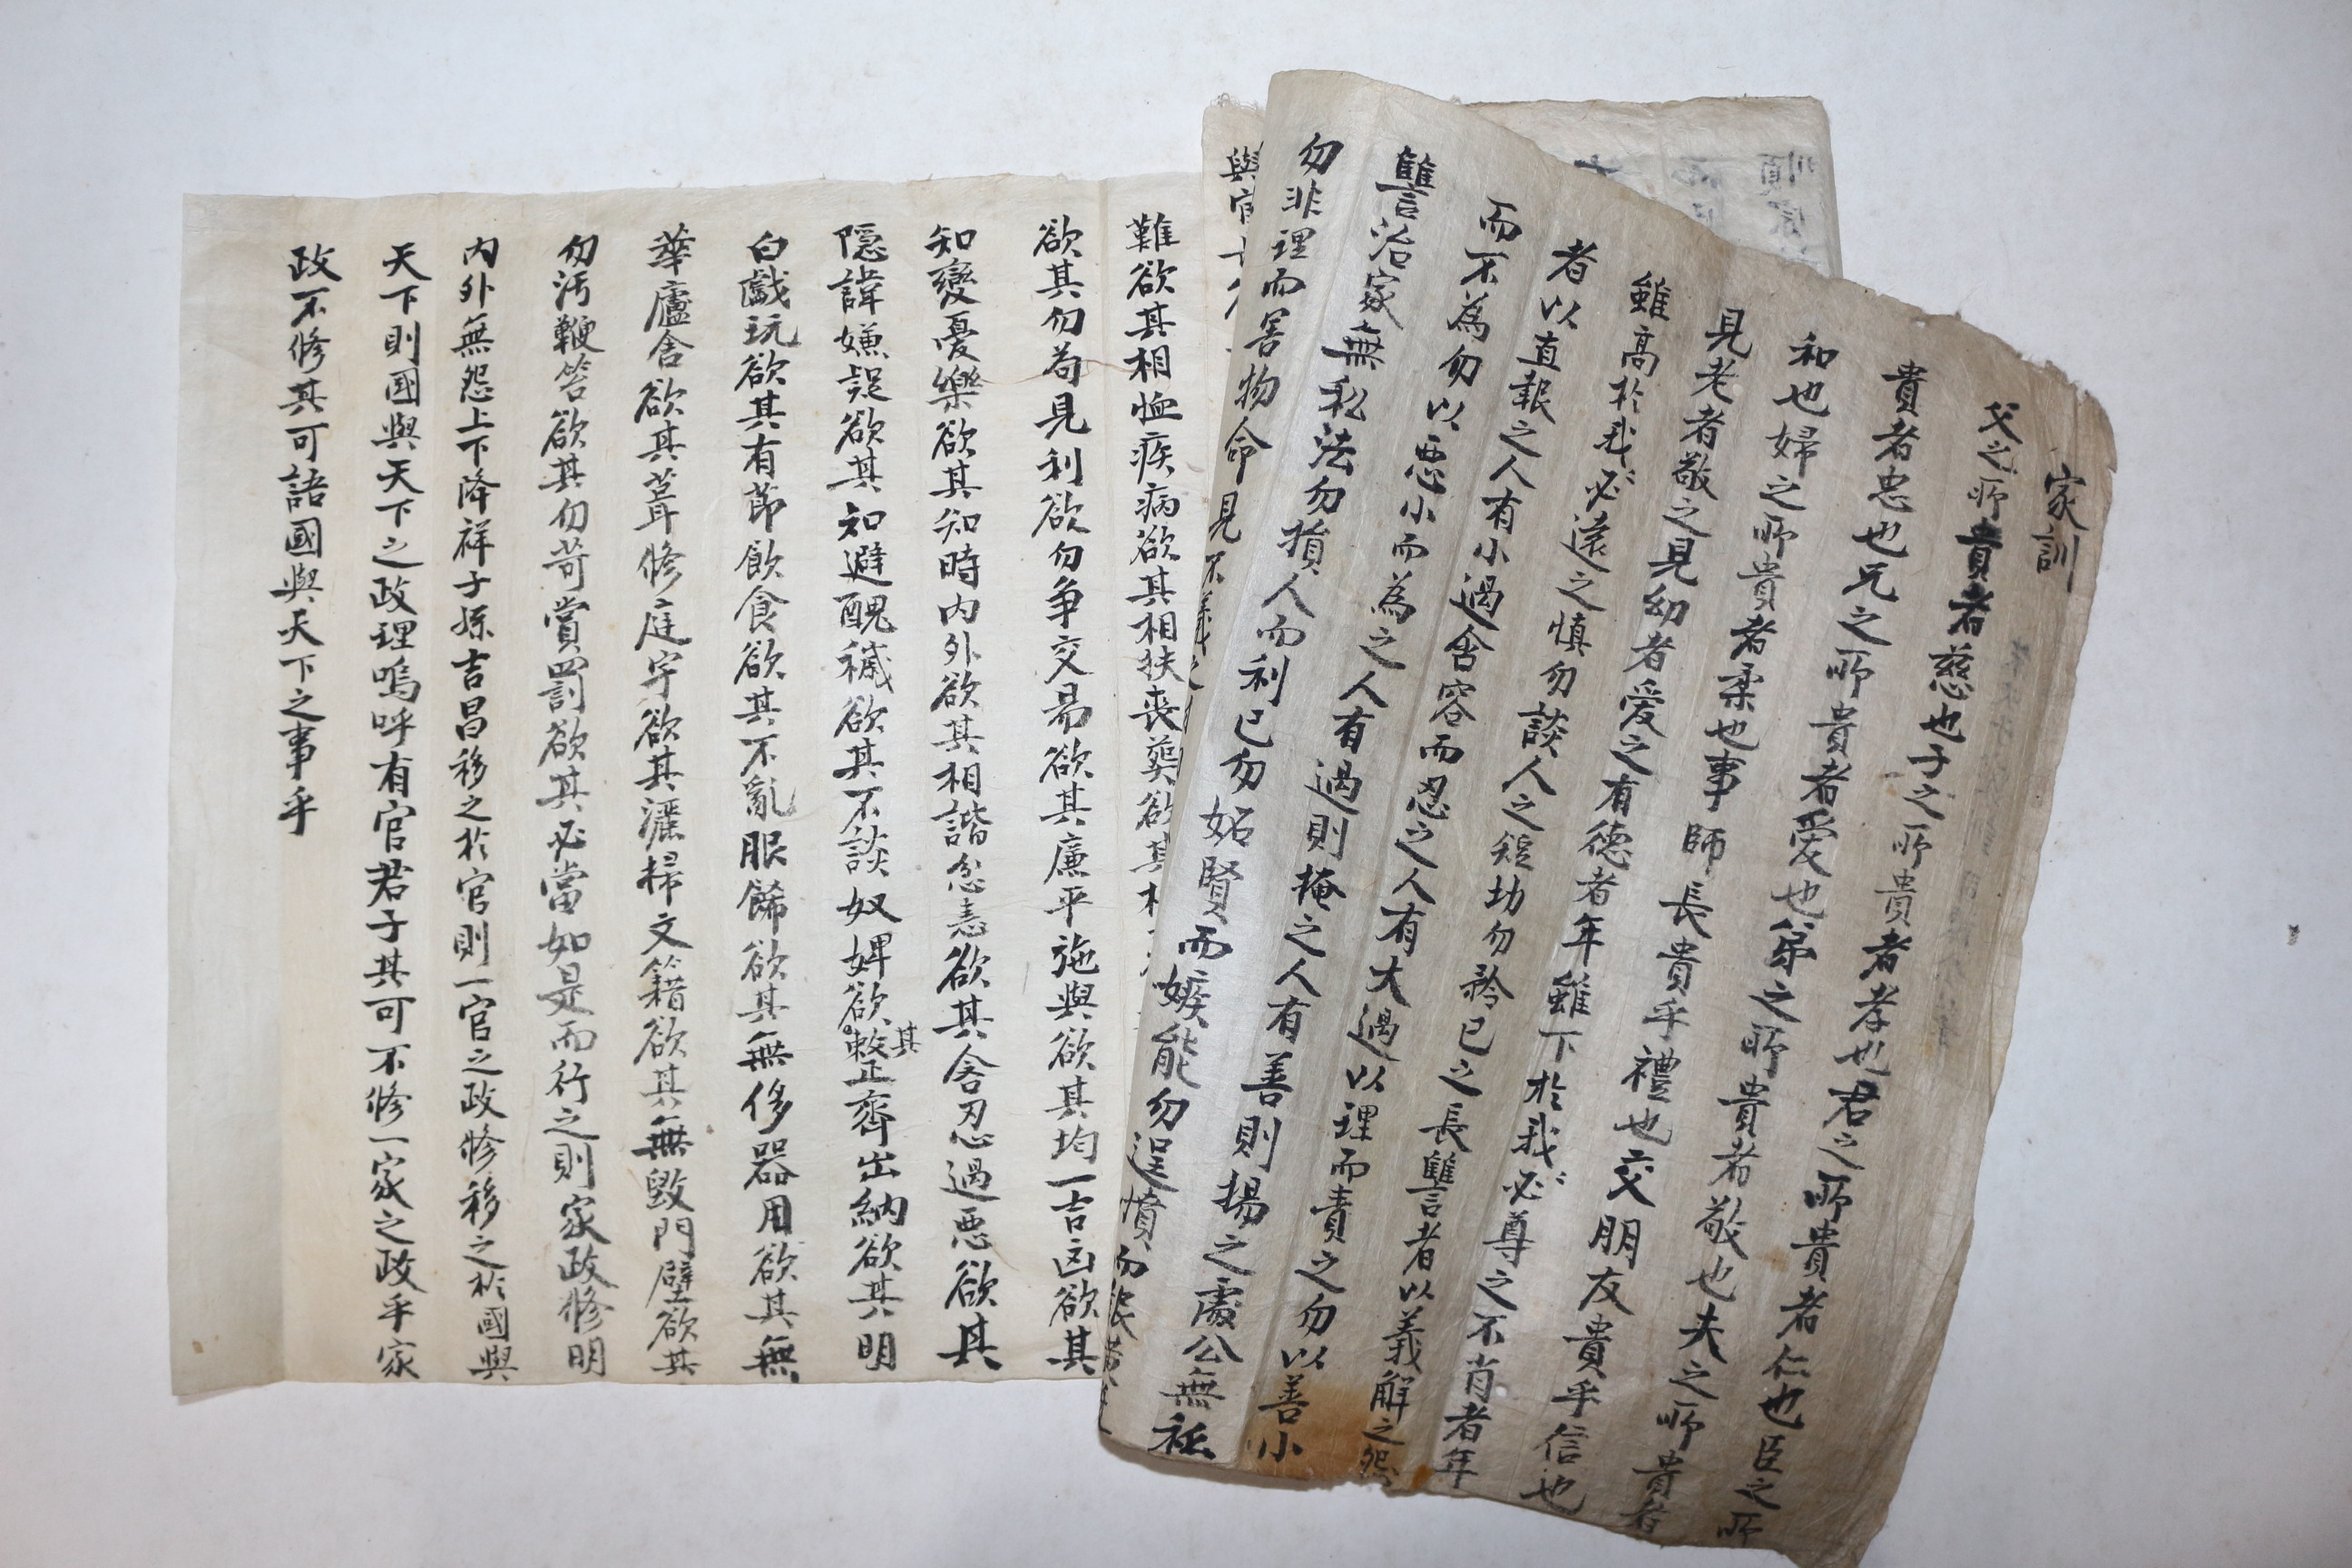 家訓
父之所貴者慈也子之所貴者孝也君之所貴者仁也臣之所
貴者忠也兄之所貴者愛也弟之所貴者敬也夫之所貴者
和也婦之所貴者柔也事師長貴乎禮也交朋友貴乎信也
見老者敬之見幼者愛之有德者年雖下於我〻必尊之不肖者年
雖高於我〻必遠之慎勿談人之短切勿矜己之長讐者以義解之怨
者以直報之人有小過含容而忍之人有大過以理而責之勿以善小
而不為勿以惡小而為之人有過則掩之人有善則揚之處公無私
讐治家無私法勿損人而利己勿妬賢而嫉能勿逞憤而
勿非理而害物命見不義之
與官長
難欲其相恤疾病欲其相扶喪葬欲其相
欲其勿苟見利欲勿爭交易欲其廉平施與欲其均一吉凶欲其
知變憂樂欲其知時內外欲其相諧忿恚欲其含忍過惡欲其
隱諱嫌疑欲其知避醜穢欲其不談奴婢欲其整齊出納欲其明
白戲玩欲其有節飮食欲其不亂服餙欲其無侈器用欲其無
華廬舍欲其葺修庭宇欲其灑掃文籍欲其無毀門壁欲其
勿汚鞭笞欲其勿苛賞罰欲其必當如是而行之則家政修明
內外無怨上下降祥子孫吉昌移之於官則一官之政修移之於國與
天下則國與天下之政理嗚呼有官君子其可不修一家之政乎家
政不修其可語國與天下之事乎